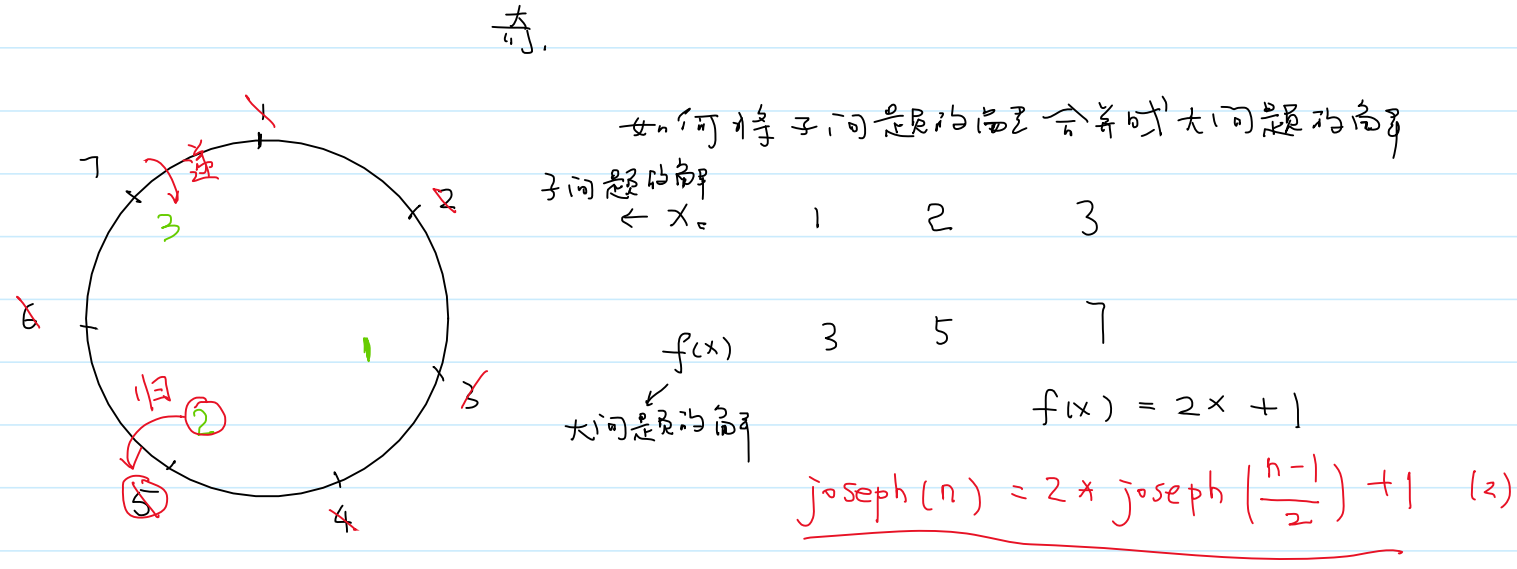 奇.
如何将子问题的解合并成大问题的解
子问题的解
← x。 1 2 3
f(x) 3 5 7
大问题的解
f(x) = 2x + 1
joseph(n) = 2 * joseph(\frac{n-1}{2}) + 1 (2)
1
7 递 2
3
6
1
归 2 3
5
4